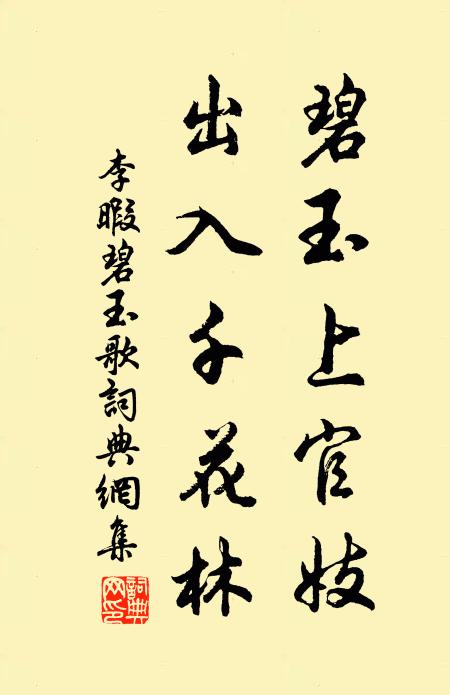 碧玉上官妓
出入千花林
李暇碧玉歌詞典網集
詞典網印